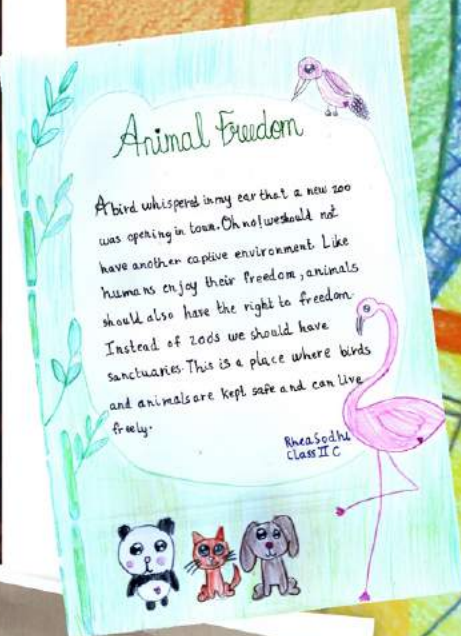 Animal Freedom
A bird whispered in my ear that a new zoo
was opening in town. Oh no! we should not
have another captive environment. Like
humans enjoy their freedom, animals
should also have the right to freedom.
Instead of zoos we should have
sanctuaries. This is a place where birds
and animals are kept safe and can live
freely.
Rhea Sodhi
Class II C